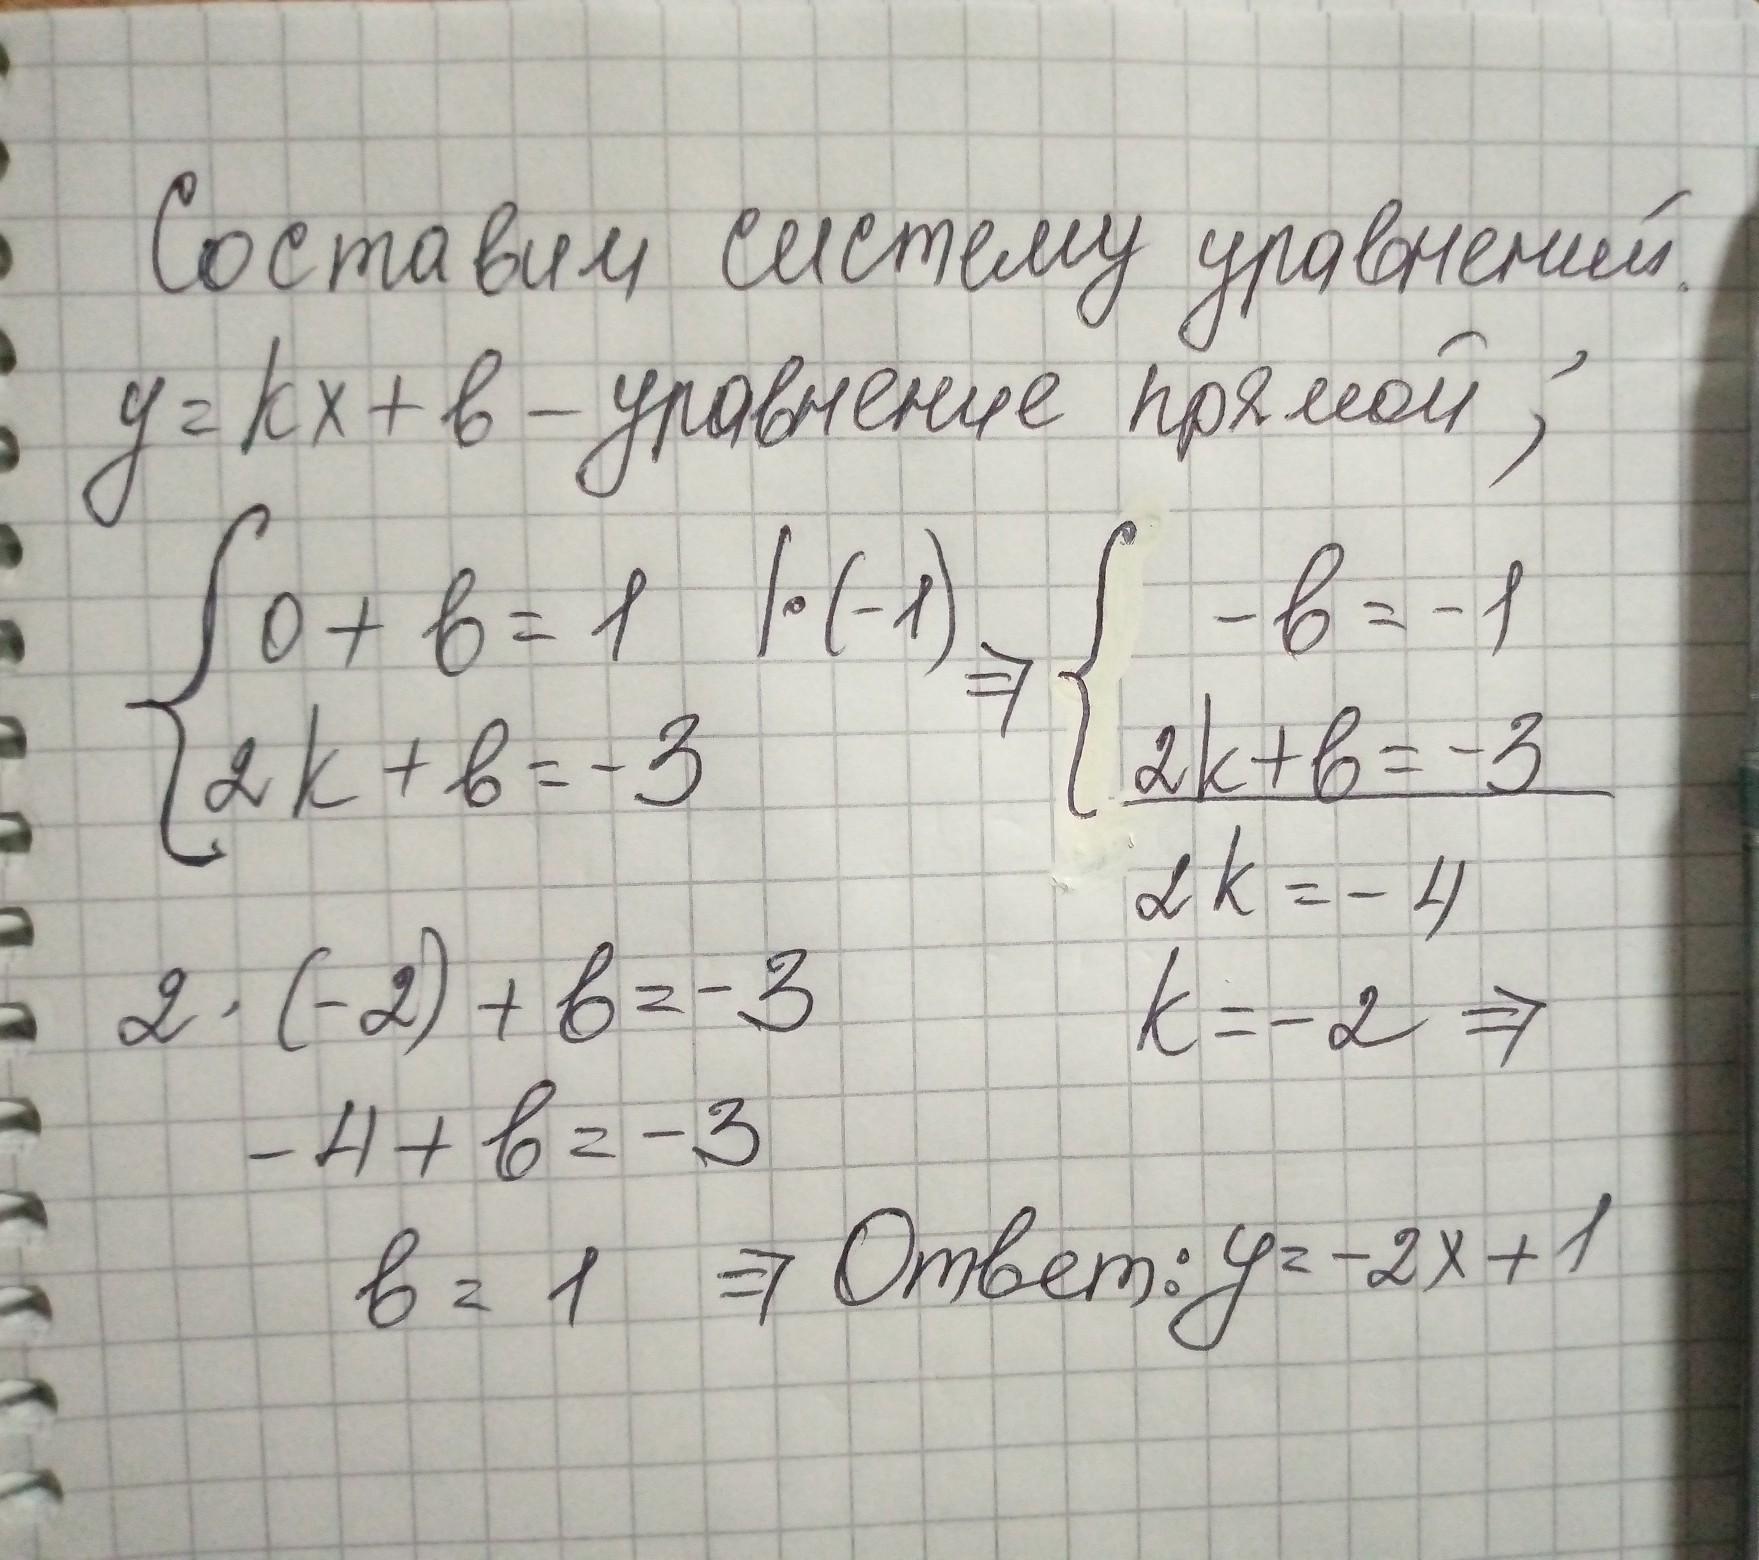 Составим систему уравнений.
y = kx + b – уравнение прямой;
{ 0 + b = 1 |·(-1) ⇒ { -b = -1
2k + b = -3 2k + b = -3
2k = -4
2 · (-2) + b = -3 k = -2 ⇒
-4 + b = -3
b = 1 ⇒ Ответ: y = -2x + 1